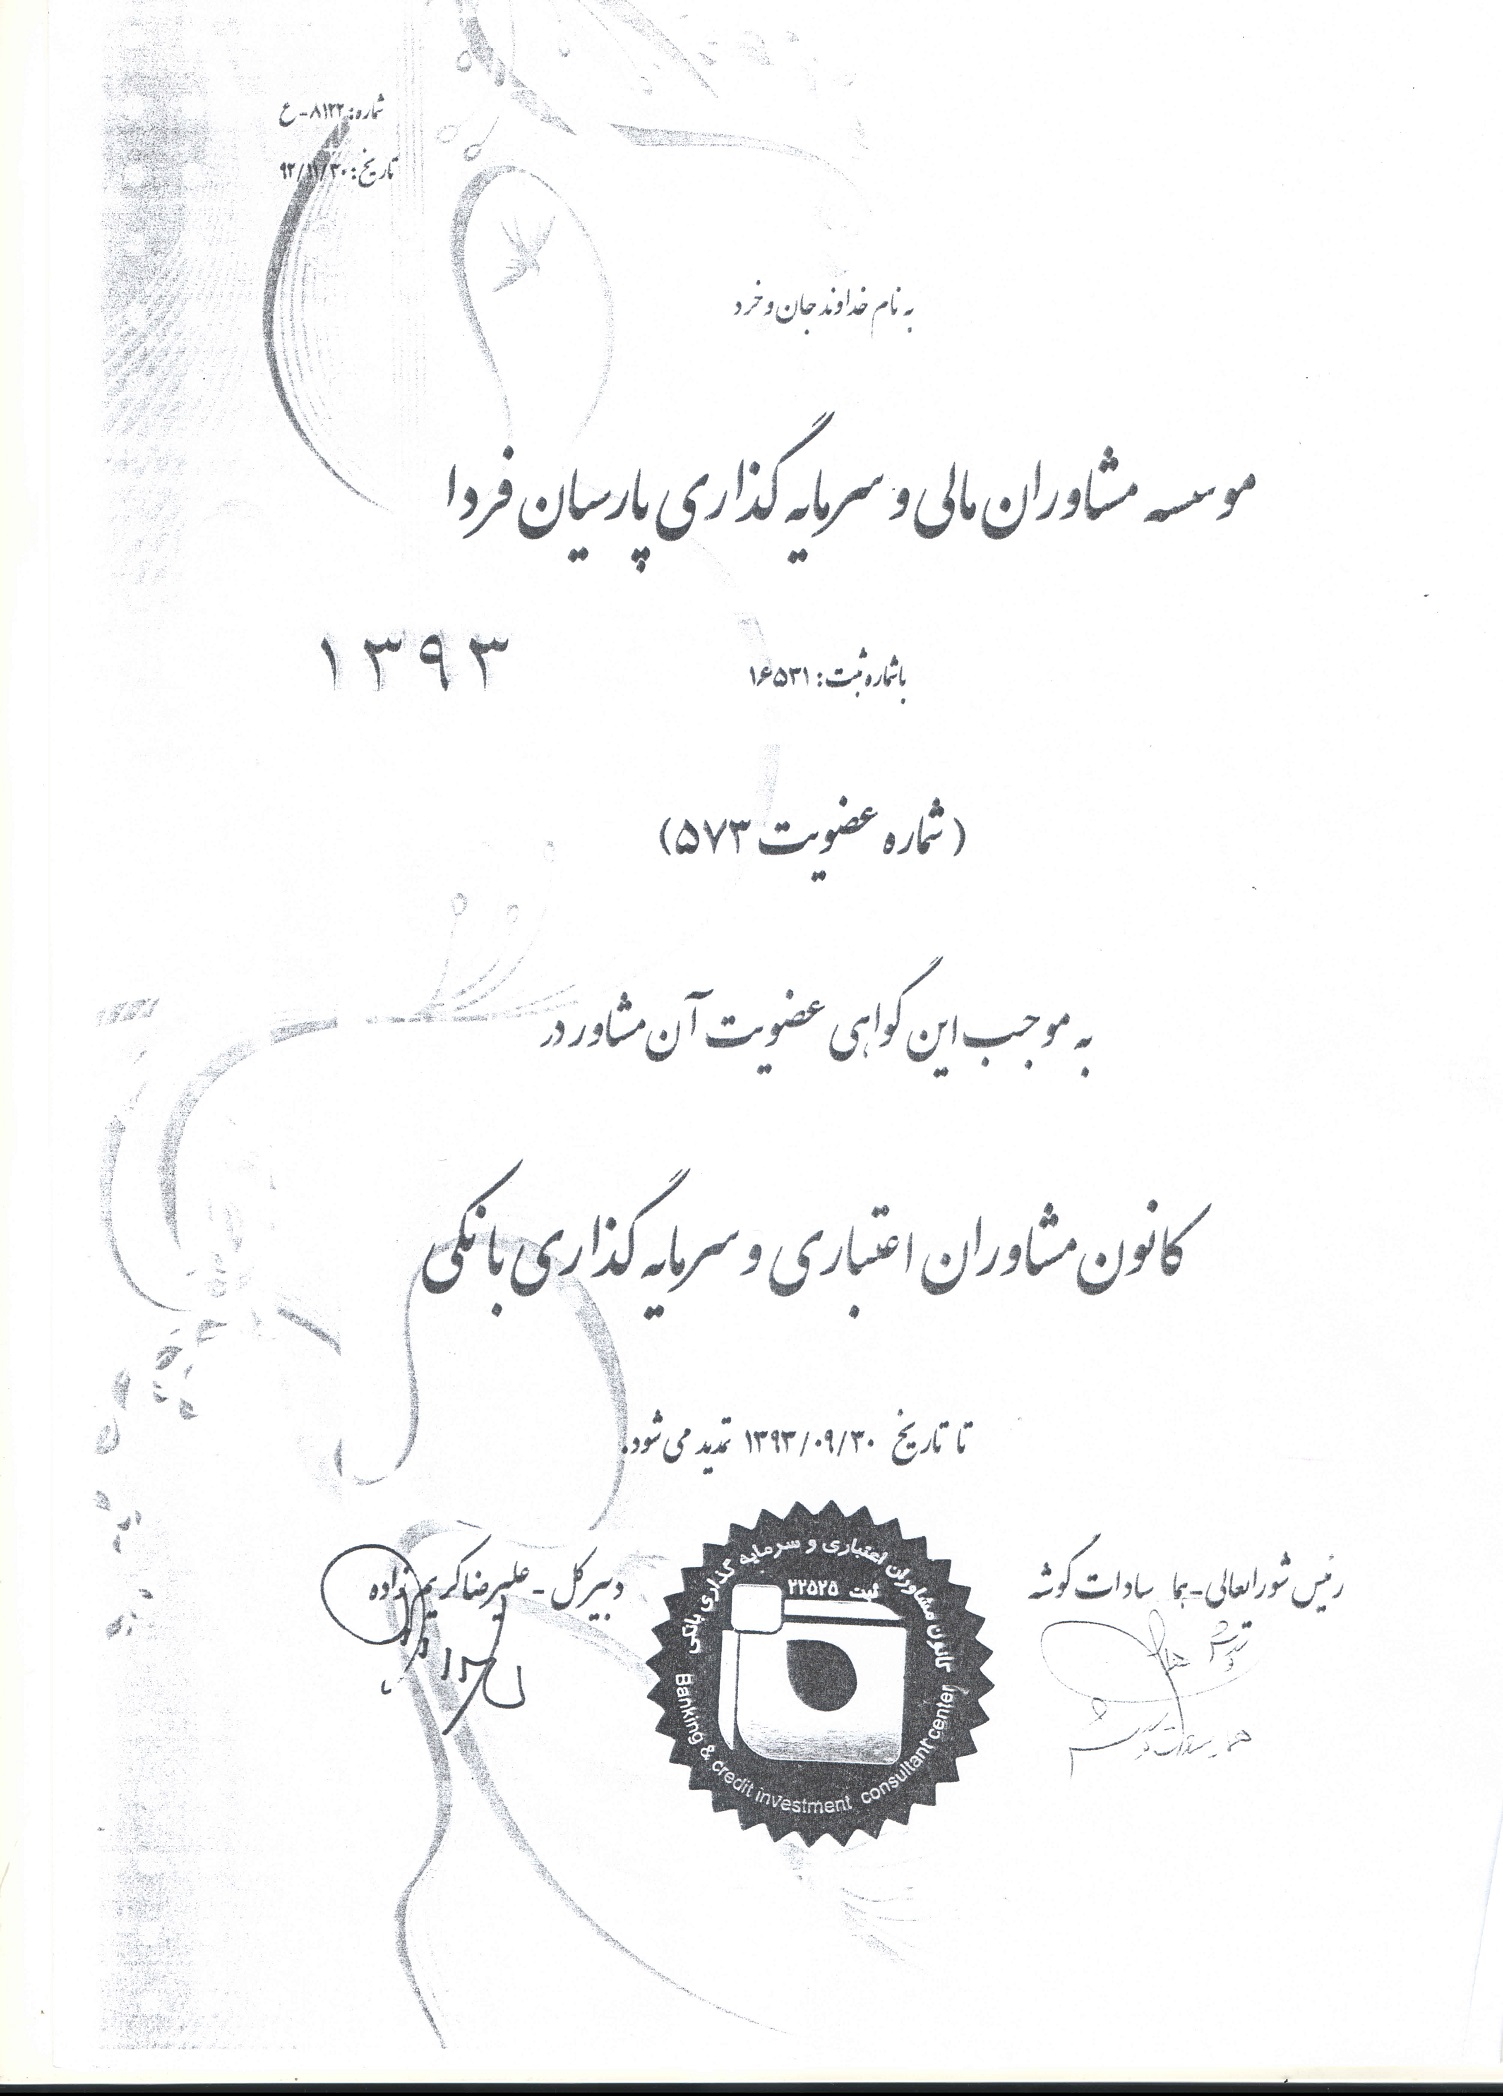 شماره: ۸۱۲۲-ع
تاریخ: ۹۲/۱۱/۳۰
به نام خداوند جان و خرد
موسسه مشاوران مالی و سرمایه گذاری پارسیان فردا
با شماره ثبت: ۱۶۵۳۱
۱۳۹۳
(شماره عضویت ۵۷۳)
به موجب این گواهی عضویت آن مشاور در
کانون مشاوران اعتباری و سرمایه گذاری بانکی
تا تاریخ ۱۳۹۳/۰۹/۳۰ تمدید می شود.
رئیس شورایعالی-هما سادات گوشه
دبیرکل-علیرضا کریم زاده
کانون مشاوران اعتباری و سرمایه گذاری بانکی
ثبت ۲۲۵۲۵
Banking & credit investment consultant center